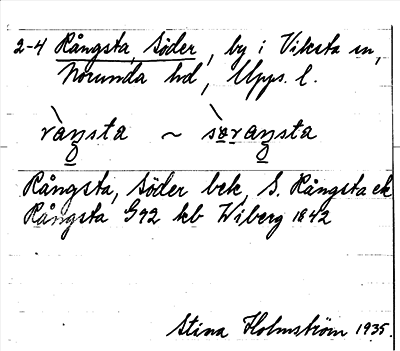 2-4 Rångsta, Söder, by i Viksta sn,
Norunda hd, Upps. l.
ràŋsta ~ sø̀raŋsta
Rångsta, Söder bek, S. Rångsta ek
Rångsta G92 kb Wiberg 1842
Stina Holmström 1935.